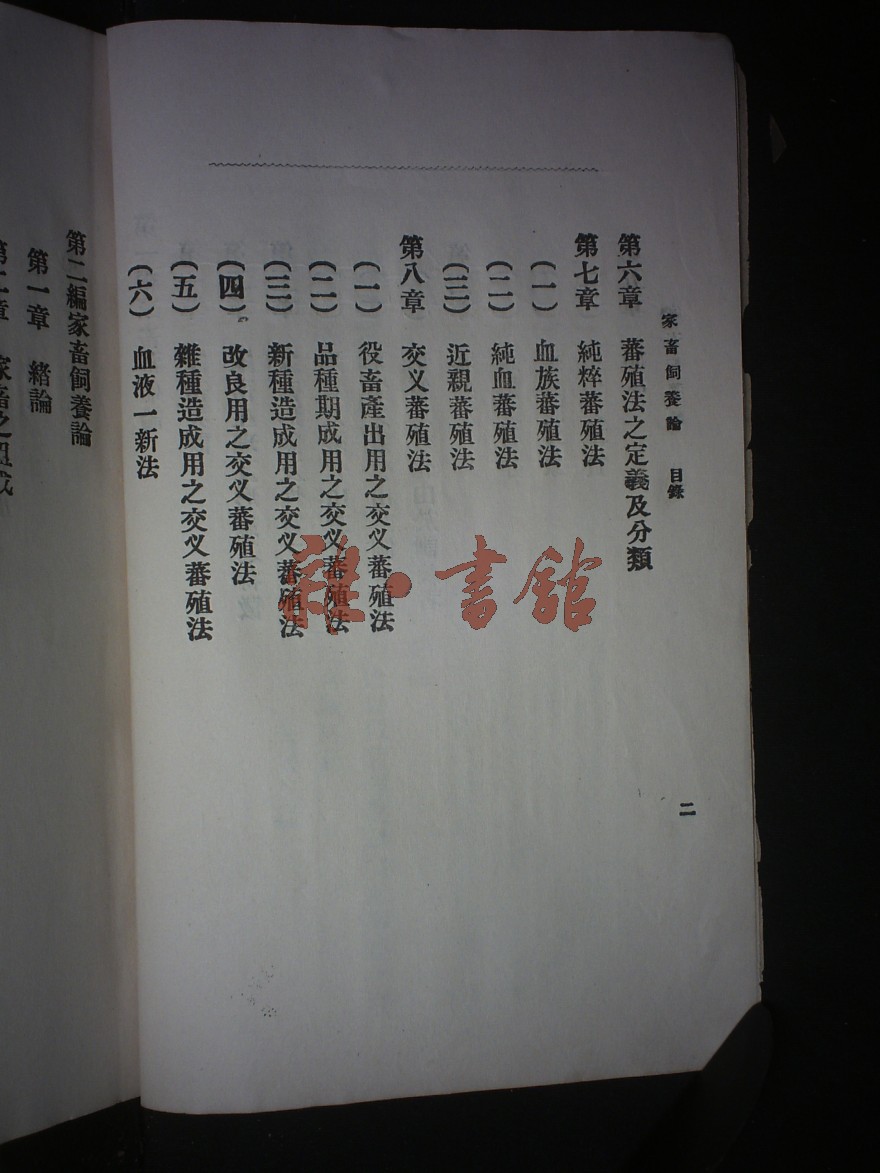 家畜飼養論　目錄
二
第六章　蕃殖法之定義及分類
第七章　純粹蕃殖法
（一）　血族蕃殖法
（二）　純血蕃殖法
（三）　近親蕃殖法
第八章　交义蕃殖法
（一）　役畜產出用之交义蕃殖法
（二）　品種期成用之交义蕃殖法
（三）　新種造成用之交义蕃殖法
（四）　改良用之交义蕃殖法
（五）　雜種造成用之交义蕃殖法
（六）　血液一新法
第二編家畜飼養論
第一章　緒論
第二章　家畜之組成
雜·書館